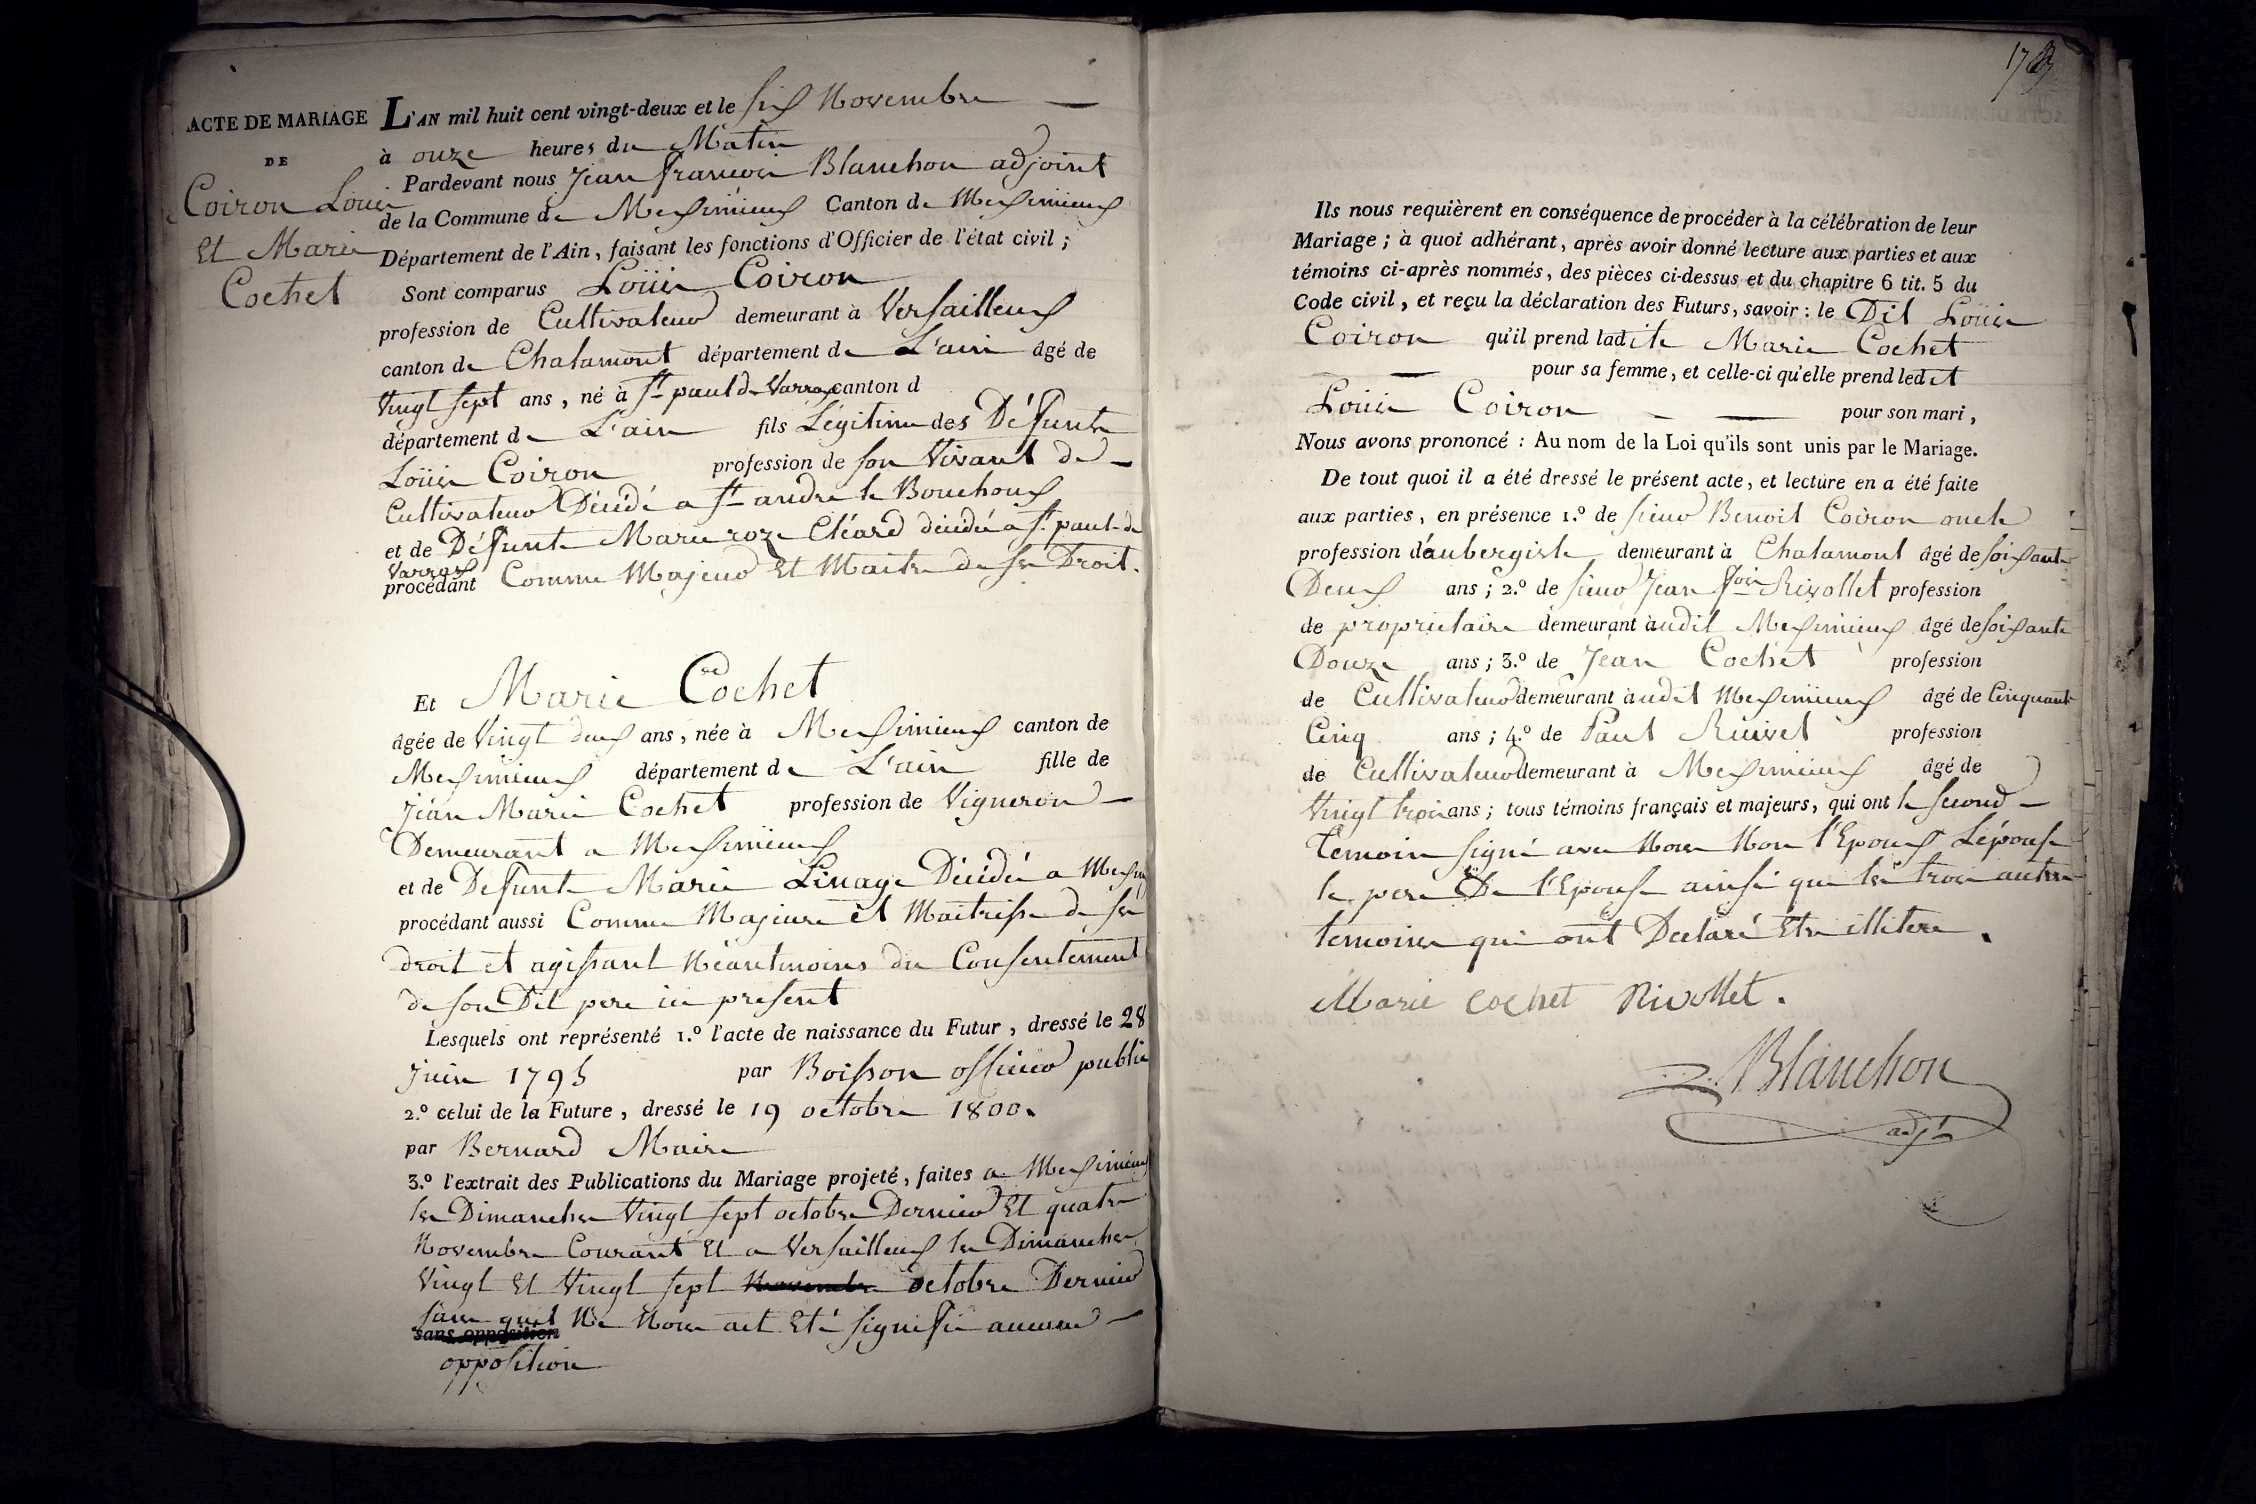 ACTE DE MARIAGE
DE
Coiron Louis
Et Marie
Cochet
L'AN mil huit cent vingt-deux et le six Novembre
à onze heures du Matin
Pardevant nous Jean francois Blanchon adjoint
de la Commune de Meximieux Canton de Meximieux
Département de l'Ain, faisant les fonctions d'Officier de l'état civil ;
Sont comparus Loüis Coiron
profession de Cultivateur demeurant à Versailleux
canton de Chalamont département de L'ain âgé de
Vingt sept ans, né à St paul de Varrax canton d
département de L'ain fils Légitime des Défunts
Loüis Coiron profession de son Vivant de
Cultivateur Décédé a St andré le Bouchoux
et de Défunte Marie roze Cléard décédée a St paul de
Varrax
procédant Comme Majeur Et Maitre de ses Droit.
Et Marie Cochet
âgée de Vingt deux ans, née à Meximieux canton de
Meximieux département de L'ain fille de
Jean Marie Cochet profession de Vigneron
Demeurant a Meximieux
et de Defunte Marie Linage Décédée a Mexim
procédant aussi Comme Majeure et Maitrisse de ses
droit et agissant Néantmoins du Consentement
de son Dit pere ici present
Lesquels ont représenté 1.º l'acte de naissance du Futur, dressé le 28
Juin 1795 par Boisson officier public
2.º celui de la Future, dressé le 19 octobre 1800.
par Bernard Maire
3.º l'extrait des Publications du Mariage projeté, faites a Meximieux
les Dimanches Vingt sept octobre Dernier Et quatre
Novembre Courant Et a Versailleux les Dimanches
Vingt Et Vingt sept Novembre octobre Dernier
sans quil Ne Nous ait Eté signifié aucune
sans opposition
opposition
173
Ils nous requièrent en conséquence de procéder à la célébration de leur
Mariage ; à quoi adhérant, après avoir donné lecture aux parties et aux
témoins ci-après nommés, des pièces ci-dessus et du chapitre 6 tit. 5 du
Code civil, et reçu la déclaration des Futurs, savoir : le Dit Loüis
Coiron qu'il prend ladite Marie Cochet
pour sa femme, et celle-ci qu'elle prend ledit
Louis Coiron pour son mari,
Nous avons prononcé : Au nom de la Loi qu'ils sont unis par le Mariage.
De tout quoi il a été dressé le présent acte, et lecture en a été faite
aux parties, en présence 1.º de sieur Benoit Coiron oncle
profession d'aubergiste demeurant à Chalamont âgé de soixante
Deux ans ; 2.º de sieur Jean fois Rivollet profession
de propriétaire demeurant àudit Meximieux âgé de soixante
Douze ans ; 3.º de Jean Cochet profession
de Cultivateur demeurant àudit Meximieux âgé de Cinquante
Cinq ans ; 4.º de Paul Ruivet profession
de Cultivateur demeurant à Meximieux âgé de
Vingt trois ans ; tous témoins français et majeurs, qui ont le second
Temoin signé avec Nous Non l'Epoux L'épouse
le pere De l'Epouse ainsi que les trois autres
temoins qui ont Declaré Etre illitere.
Marie cochet Rivollet.
Blanchon
adjt